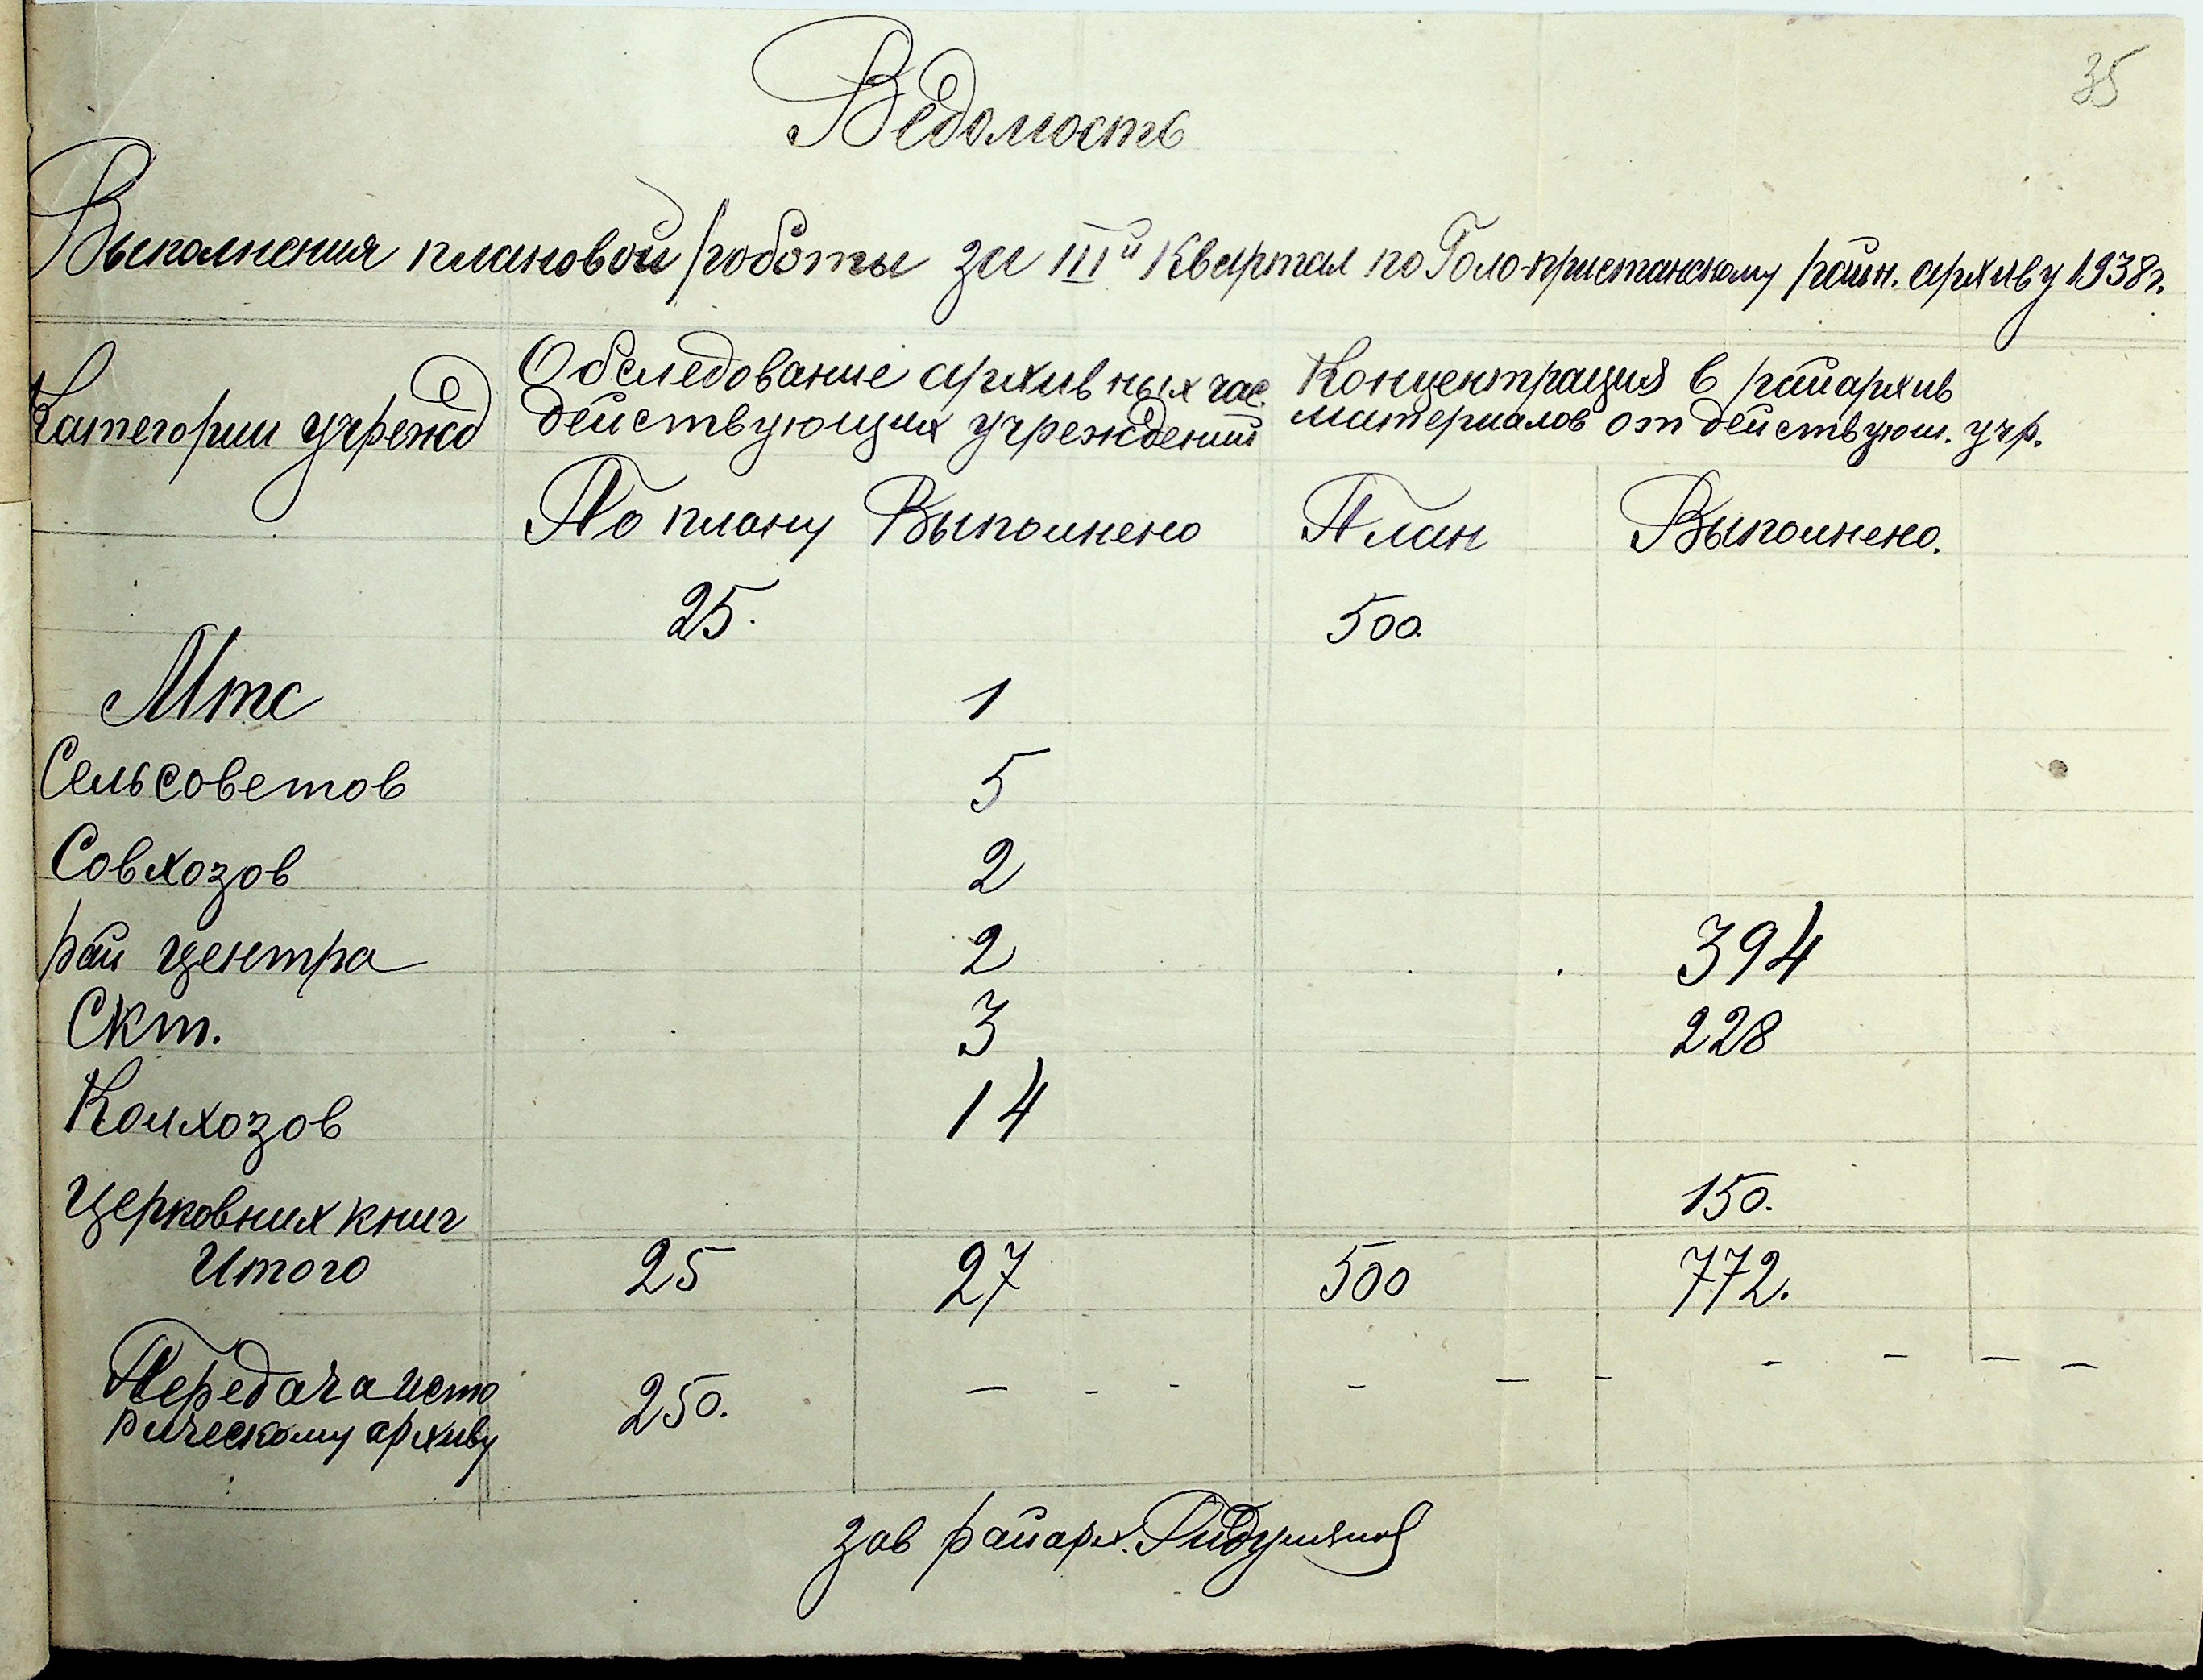 35
Ведомость
Выполнения плановой роботы за III й Квартал по Голо-пристанскому райн. архиву 1938 г.
Категории учрежд
Обследование архивных час.
действующих учреждений
Концентрация в райархив
материалов от действующ. учр.
По плану Выполнено План Выполнено.
25. 500.
Мтс 1
Сельсоветов 5
Совхозов 2
рай центра 2 394
Скт. 3 228
Колхозов 14
Церковних книг 150.
Итого 25 27 500 772.
Передача исто
рическому архиву
250. — - - - — - - — — —
зав райарх.